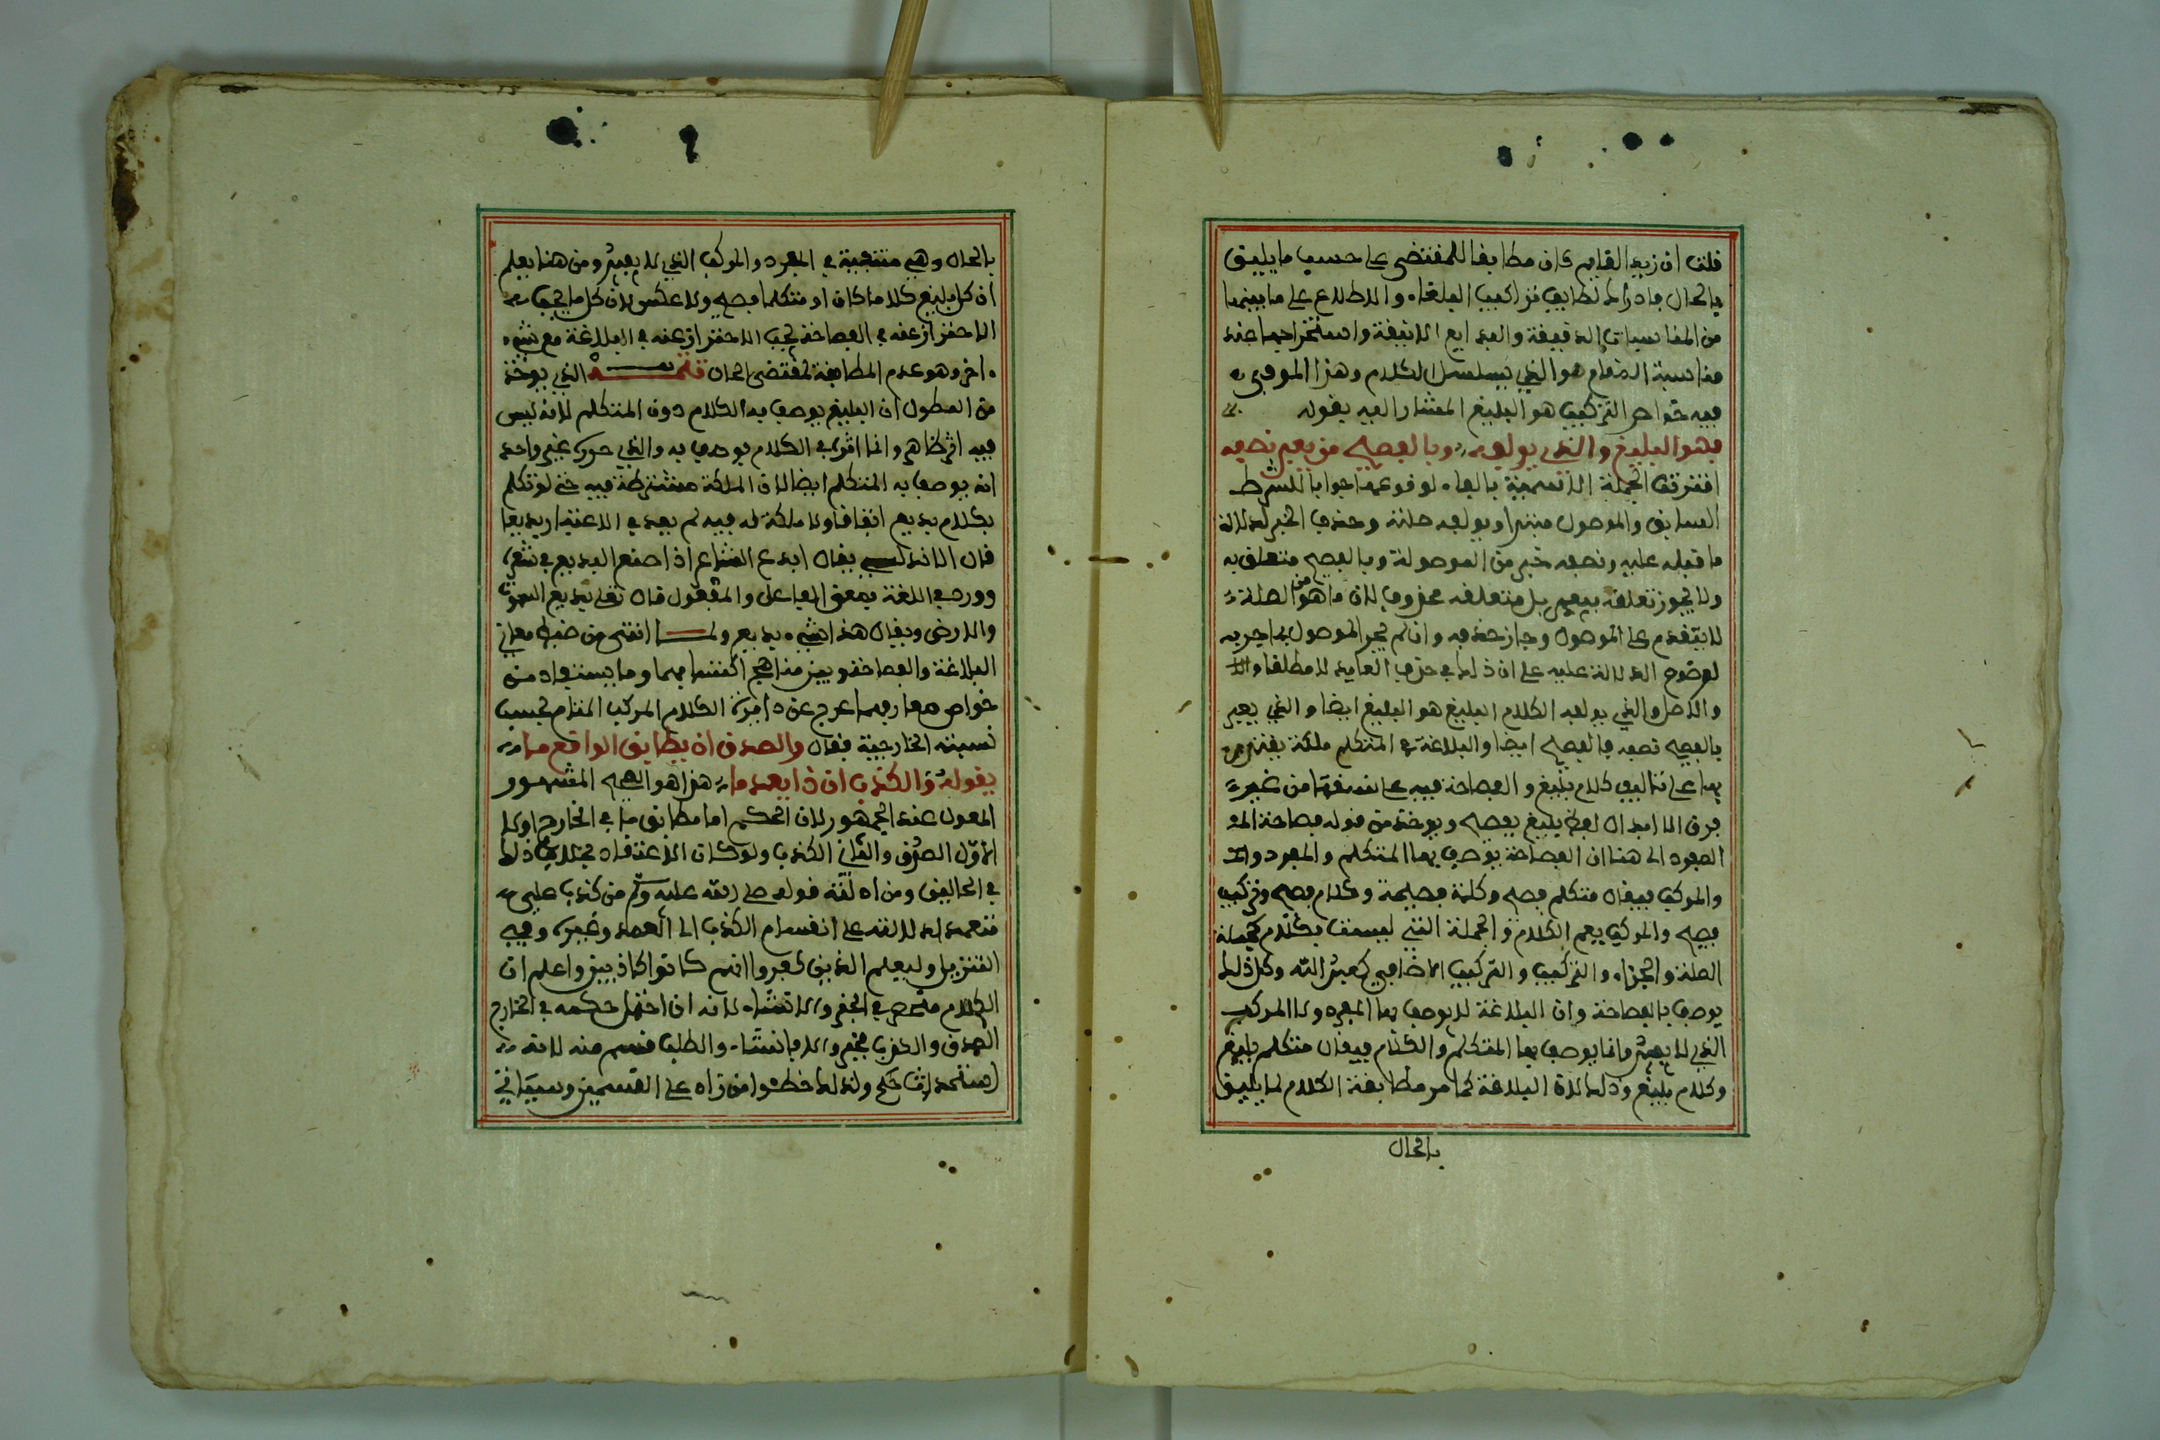 قلت ان زيدا لقايم كان مطابقا للمقتضى على حسب ما يليق
بالحال فادراك لطايف تراكيب البلغاء والاطلاع على ما بينهما
من المناسبات الدقيقة والبدايع الانيقة واستخراجها عند
مناسبة المقام هو الذي الكلام وهذا الموفى
فيه خواص التركيب هو البليغ المشار اليه بقوله
فهو البليغ والذي يولفه وبالفصيح من يعبر نصفه
اقترنت الجملة الاسمية بالفاء لوقوعها جوابا للشرط
السابق والموصول مبتدا ويولفه صلته وحذف الخبر لدلالة
ما قبله عليه ونصفه خبر من الموصولة وبالفصيح متعلق به
ولا يجوز تعلقه بيعبر بل متعلقه محذوف لان ما هو من الصلة
لا يتقدم على الموصول وجاز حذفه وان لم يجر الموصول بما جر به
لوضوح الدلالة عليه على ان ذلك في حذف العايد لا مطلقا
والاصل والذي يولف الكلام البليغ هو البليغ ايضا والذي يعبر
بالفصيح نصفه بالفصيح ايضا والبلاغة في المتكلم ملكة يقتدر
بها على تاليف كلام بليغ والفصاحة فيه على من غير
فرق الا ابدال لفظ بليغ بفصيح ويوخذ من قوله فصاحة المفرد
الى هنا ان الفصاحة يوصف بها المتكلم والمفرد
والمركب فيقال متكلم فصيح وكلمة فصيحة وكلام فصيح وتركيب
فصيح والمركب يعم الكلام والجملة التي ليست بكلام كجملة
الصلة والجزاء والتركيب والتركيب الاضافي كعبد الله وكل ذلك
يوصف بالفصاحة وان البلاغة لا يوصف بها المفرد ولا المركب
الذي لا يفيد وانما يوصف بها المتكلم والكلام فيقال متكلم بليغ
وكلام بليغ وذلك لان البلاغة كما مر مطابقة الكلام لما يليق
بالحال
بالحال وهي منتفية في المفرد والمركب الذي لا يفيد ومن هنا يعلم
ان كل بليغ كلاما كان او متكلما فصيح ولا عكس لان كل ما يجب
الاحتراز عنه في الفصاحة يجب الاحتراز عنه في البلاغة مع شيء
اخر وهو عدم المطابقة لمقتضى الحال الذي يوخذ
من المطول ان البليغ يوصف به الكلام دون المتكلم لانه ليس
فيه اثر ظاهر وانما اثره في الكلام يوصف به والذي حرره غير واحد
انه يوصف به المتكلم ايضا لان الملكة مشترطة فيه حتى لو تكلم
بكلام بديع اتفاقا ولا ملكة له فيه لم يعد في الاعتبار بديعا
قال الاندلسي يقال ابدع الشاعر اذا صنع البديع في شعره
وورد في اللغة بمعنى الفاعل والمفعول قال تعلى بديع السموت
والارض ويقال هذا شيء بديع ولما انتهى من ضبط معاني
البلاغة والفصاحة وبين مناهج اكتسابهما وما يستفاد من
خواص معارفهما عرج عن دايرة الكلام المركب التام بحسب
نسبته الخارجية فقال والصدق ان يطابق الواقع ما
يقوله والكذب ان ذا يعدما هذا هو الصحيح المشهور
المعول عند الجمهور لان الحكم اما مطابق ما في الخارج اولا
الاول الصدق والثاني الكذب ولو كان الاعتقاد بخلاف ذلك
في الحالين ومن ادلته قوله صلى الله عليه وسلم من كذب علي
متعمدا لدلالته على انقسام الكذب الى العمد وغيره وفي
التنزيل وليعلم الذين كفروا انهم كانوا كاذبين واعلم ان
الكلام منحصر في الخبر والانشاء لانه ان احتمل حكمه في الخارج
الصدق والكذب فخبر والا فانشاء والطلب قسم منه لانه
ولذلك خطئوا من زاد على القسمين وسياتي